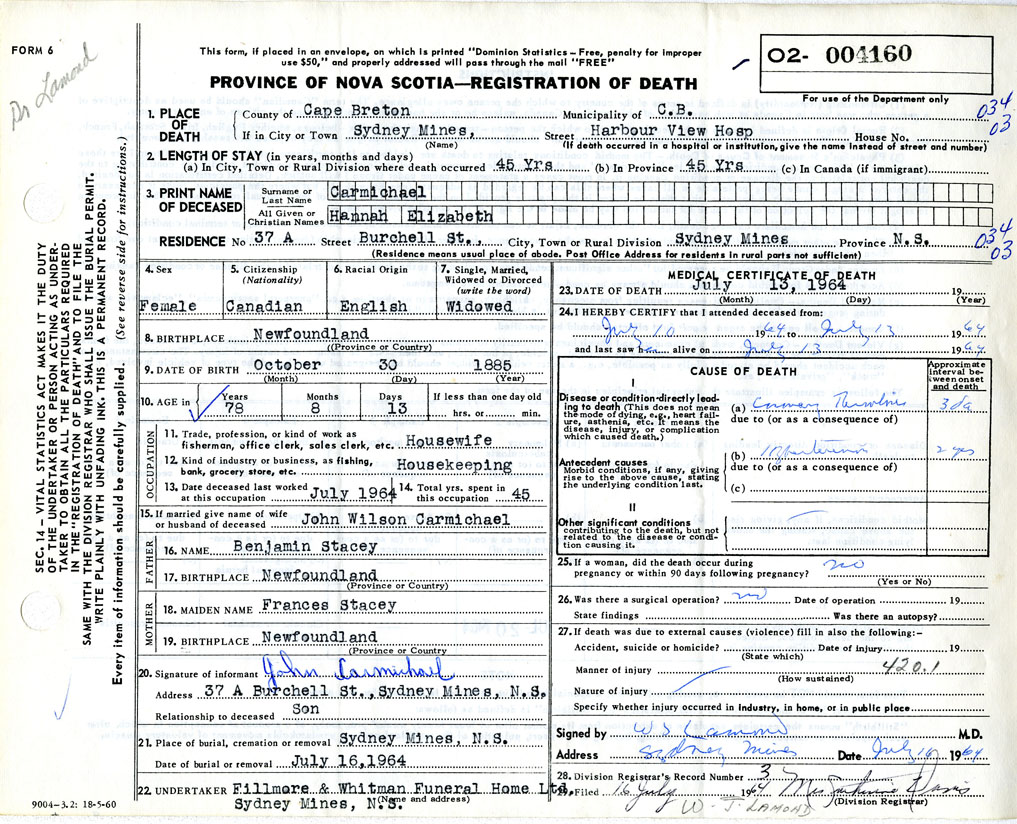 FORM 6
Dr Lamond
This form, if placed in an envelope, on which is printed "Dominion Statistics – Free, penalty for improper
use $50," and properly addressed will pass through the mail "FREE"
PROVINCE OF NOVA SCOTIA—REGISTRATION OF DEATH
02- 004160
For use of the Department only
034
03
1. PLACE OF DEATH
County of Cape Breton Municipality of C.B.
If in City or Town Sydney Mines, Street Harbour View Hosp House No.
(Name) (If death occurred in a hospital or institution, give the name instead of street and number)
2. LENGTH OF STAY (in years, months and days)
(a) In City, Town or Rural Division where death occurred 45 Yrs (b) In Province 45 Yrs (c) In Canada (if immigrant)
3. PRINT NAME OF DECEASED
Surname or Last Name Carmichael
All Given or Christian Names Hannah Elizabeth
RESIDENCE No 37 A Street Burchell St., City, Town or Rural Division Sydney Mines Province N.S.
034
03
(Residence means usual place of abode. Post Office Address for residents in rural parts not sufficient)
4. Sex
Female
5. Citizenship
(Nationality)
Canadian
6. Racial Origin
English
7. Single, Married,
Widowed or Divorced
(write the word)
Widowed
8. BIRTHPLACE Newfoundland
((Province or Country)
9. DATE OF BIRTH October 30 1885
(Month) (Day) (Year)
10. AGE in
Years Months Days If less than one day old
78 8 13 hrs. or min.
OCCUPATION
11. Trade, profession, or kind of work as
fisherman, office clerk, sales clerk, etc. Housewife
12. Kind of industry or business, as fishing,
bank, grocery store, etc. Housekeeping
13. Date deceased last worked
at this occupation July 1964
14. Total yrs. spent in
this occupation 45
15. If married give name of wife
or husband of deceased John Wilson Carmichael
FATHER
16. NAME Benjamin Stacey
17. BIRTHPLACE Newfoundland
(Province or Country)
MOTHER
18. MAIDEN NAME Frances Stacey
19. BIRTHPLACE Newfoundland
(Province or Country
20. Signature of informant John Carmichael
Address 37 A Burchell St., Sydney Mines, N.S.
Relationship to deceased Son
21. Place of burial, cremation or removal Sydney Mines, N.S.
Date of burial or removal July 16,1964
22. UNDERTAKER Fillmore & Whitman Funeral Home Ltd.
(Name and address)
Sydney Mines, N.S.
MEDICAL CERTIFICATE OF DEATH
23. DATE OF DEATH July 13, 1964 19
(Month) (Day) (Year)
24. I HEREBY CERTIFY that I attended deceased from:
July 10 1964 to July 13 1964
and last saw her alive on July 13 1964
CAUSE OF DEATH
Approximate
interval be-
tween onset
and death
I
Disease or condition directly lead-
ing to death (This does not mean
the mode of dying, e.g., heart fail-
ure, asthenia, etc. It means the
disease, injury, or complication
which caused death.)
(a) Coronary Thrombosis 3 da
due to (or as a consequence of)
(b) Hypertension 2 yrs
due to (or as a consequence of)
(c)
Antecedent causes
Morbid conditions, if any, giving
rise to the above cause, stating
the underlying condition last.
II
Other significant conditions
contributing to the death, but not
related to the disease or condi-
tion causing it.
25. If a woman, did the death occur during
pregnancy or within 90 days following pregnancy? no
(Yes or No)
26. Was there a surgical operation? no Date of operation 19
State findings Was there an autopsy?
27. If death was due to external causes (violence) fill in also the following:–
Accident, suicide or homicide? Date of injury 19
(State which)
Manner of injury 420.1
(How sustained)
Nature of injury
Specify whether injury occurred in industry, in home, or in public place
Signed by W S Lamond M.D.
Address Sydney Mines Date July 1964
28. Division Registrar's Record Number 3
29. Filed 16 July 1964 Mrs Davis
(Division Registrar)
W. J. LAMOND
SEC. 14 – VITAL STATISTICS ACT MAKES IT THE DUTY
OF THE UNDERTAKER OR PERSON ACTING AS UNDER-
TAKER TO OBTAIN ALL THE PARTICULARS REQUIRED
IN THE "REGISTRATION OF DEATH" AND TO FILE THE
SAME WITH THE DIVISION REGISTRAR WHO SHALL ISSUE THE BURIAL PERMIT.
WRITE PLAINLY WITH UNFADING INK. THIS IS A PERMANENT RECORD.
Every item of information should be carefully supplied. (See reverse side for instructions.)
9004-3.2: 18-5-60